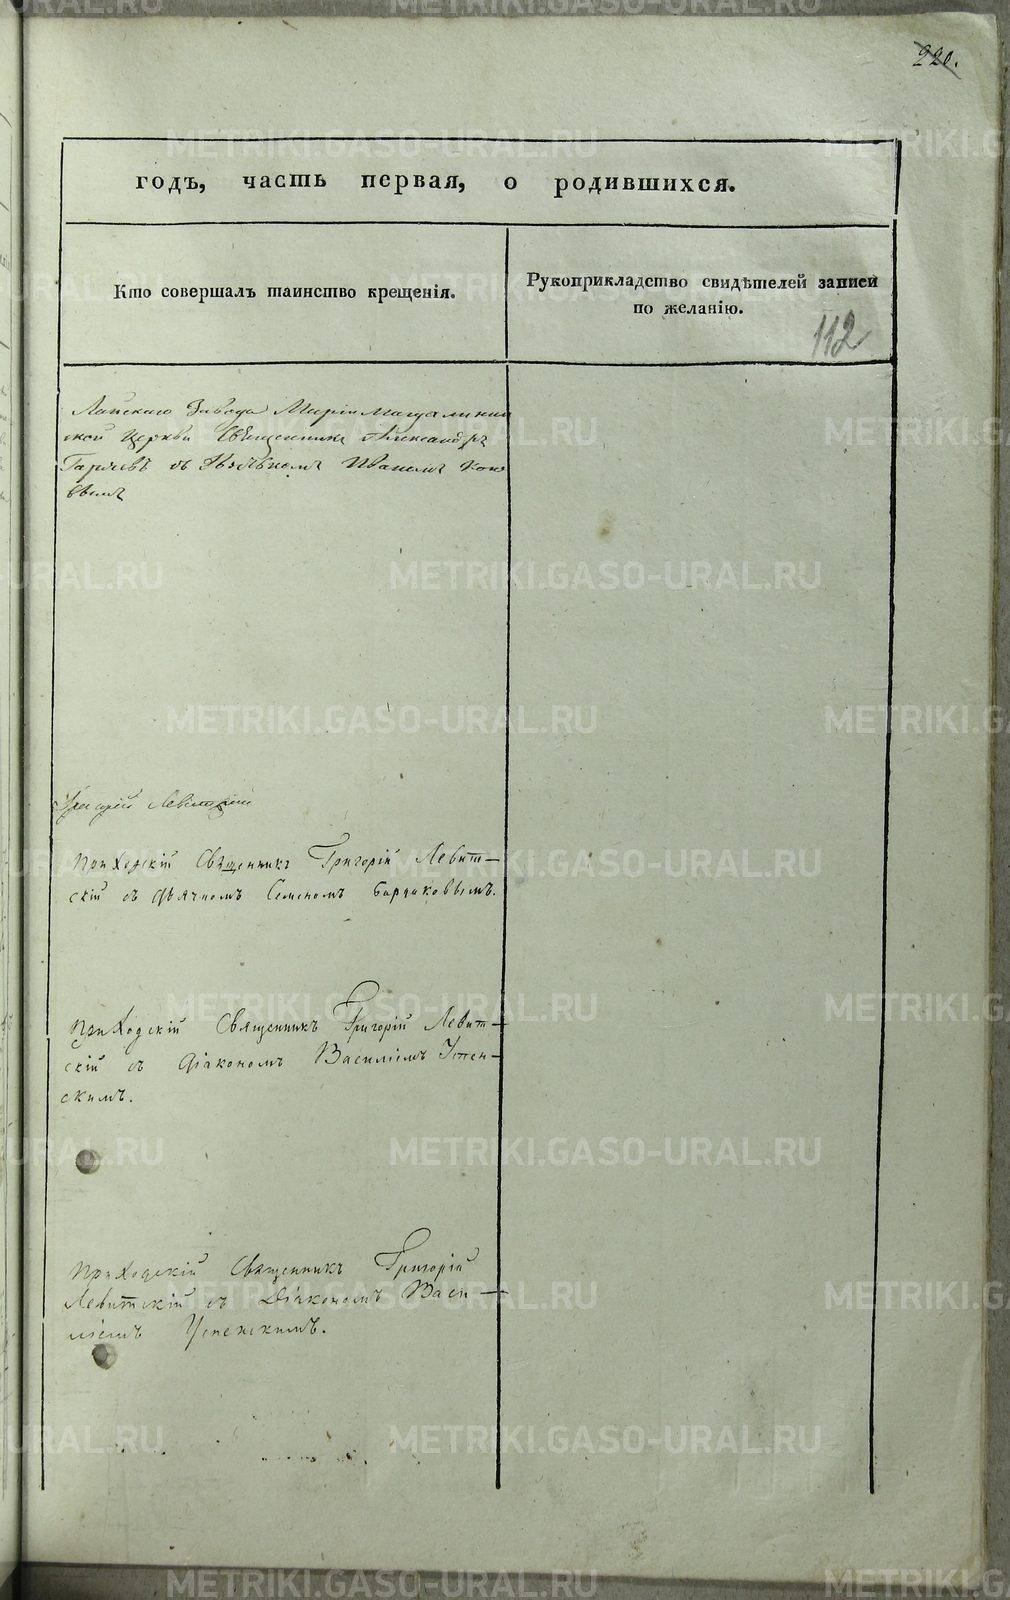 220.
годъ, часть первая, о родившихся.
Кто совершалъ таинство крещенія.
Рукоприкладство свидѣтелей записи
по желанію.
112
Лайскаго Завода Маріи Магдалинин
ской Церкви Священникъ Александръ
съ Иваномъ
Григорій Левитскій
Приходскій Священникъ Григорій Левит-
скій съ Дьячкомъ Семеномъ Бирюковымъ.
Приходскій Священникъ Григорій Левит-
скій съ Діакономъ Василіемъ Успен-
скимъ.
Приходскій Священникъ Григорій
Левитскій съ Діакономъ Васи-
ліемъ Успенскимъ.
METRIKI.GASO-URAL.RU